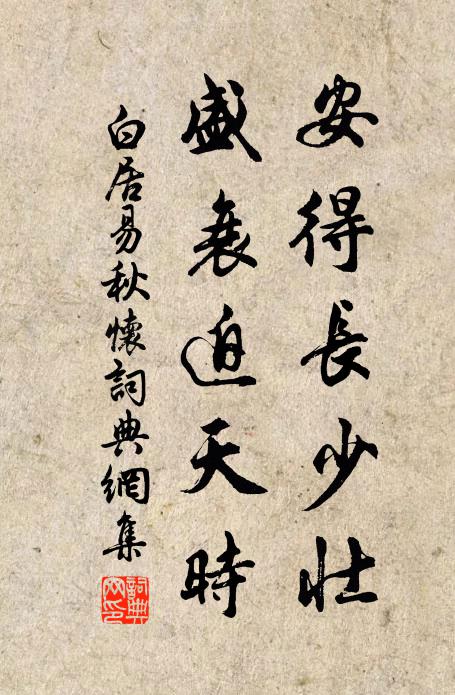 安得長少壯
盛衰迫天時
白居易秋懷詞典網集
詞典網印